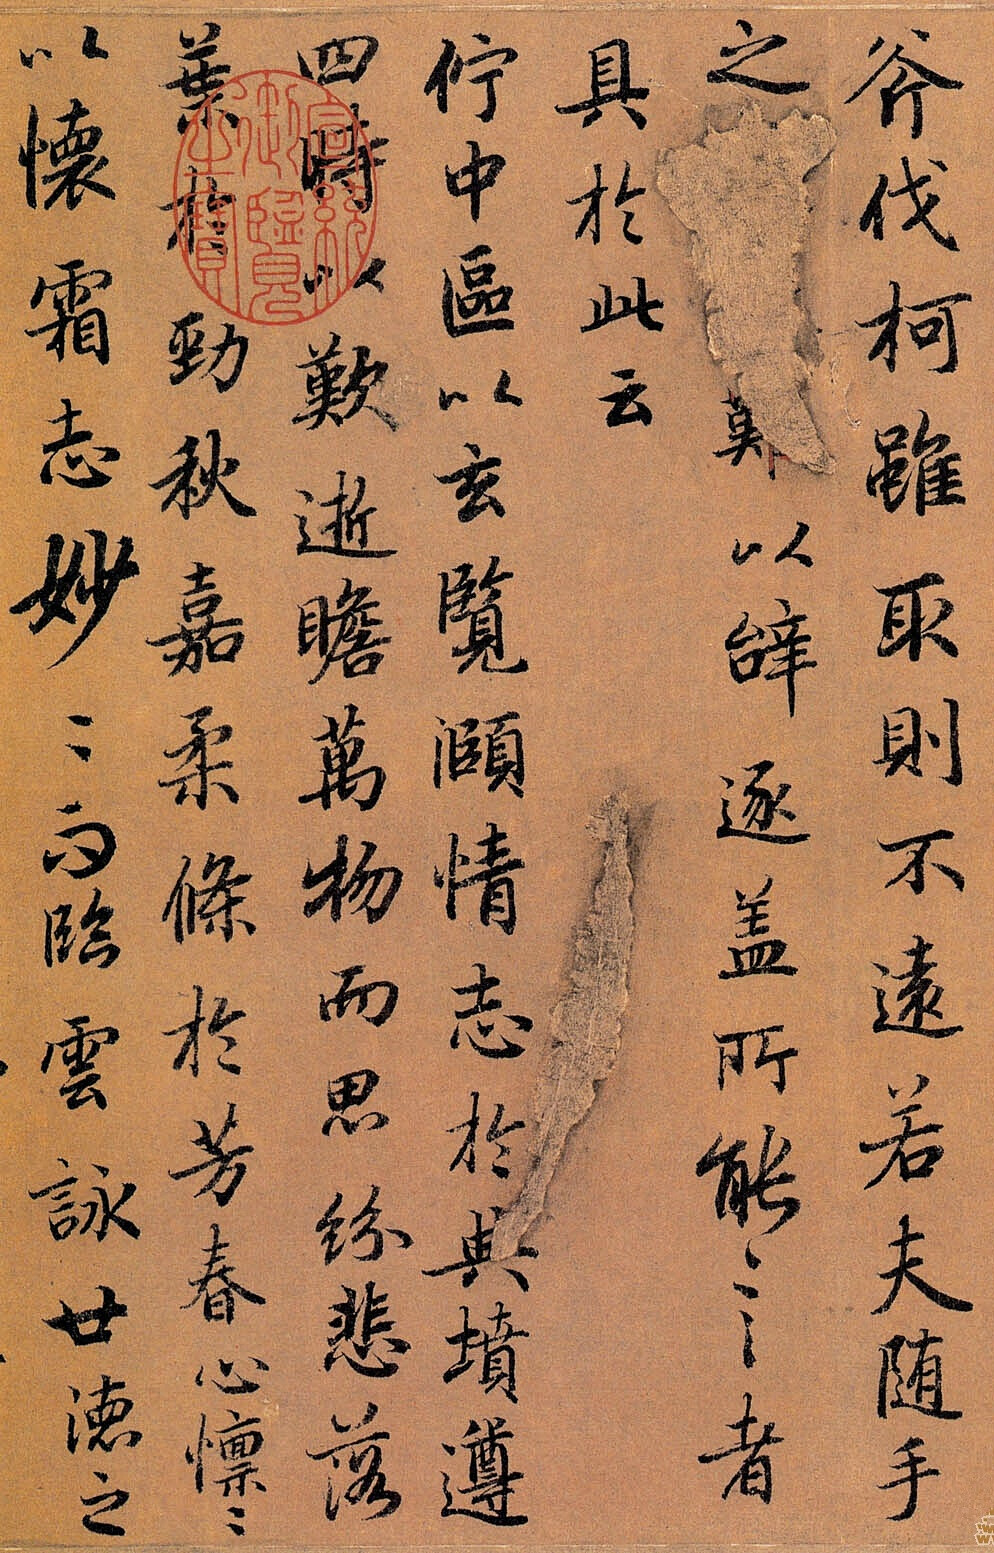 斧伐柯雖取則不遠若夫随手
之以辝逐盖所能言者
具於此云
佇中區以玄覽頤情志於典墳遵
四時以歎逝瞻萬物而思紛悲落
葉於勁秋嘉柔條於芳春心懍〻
以懷霜志妙〻而臨雲詠世德之
宣統御覽之寶